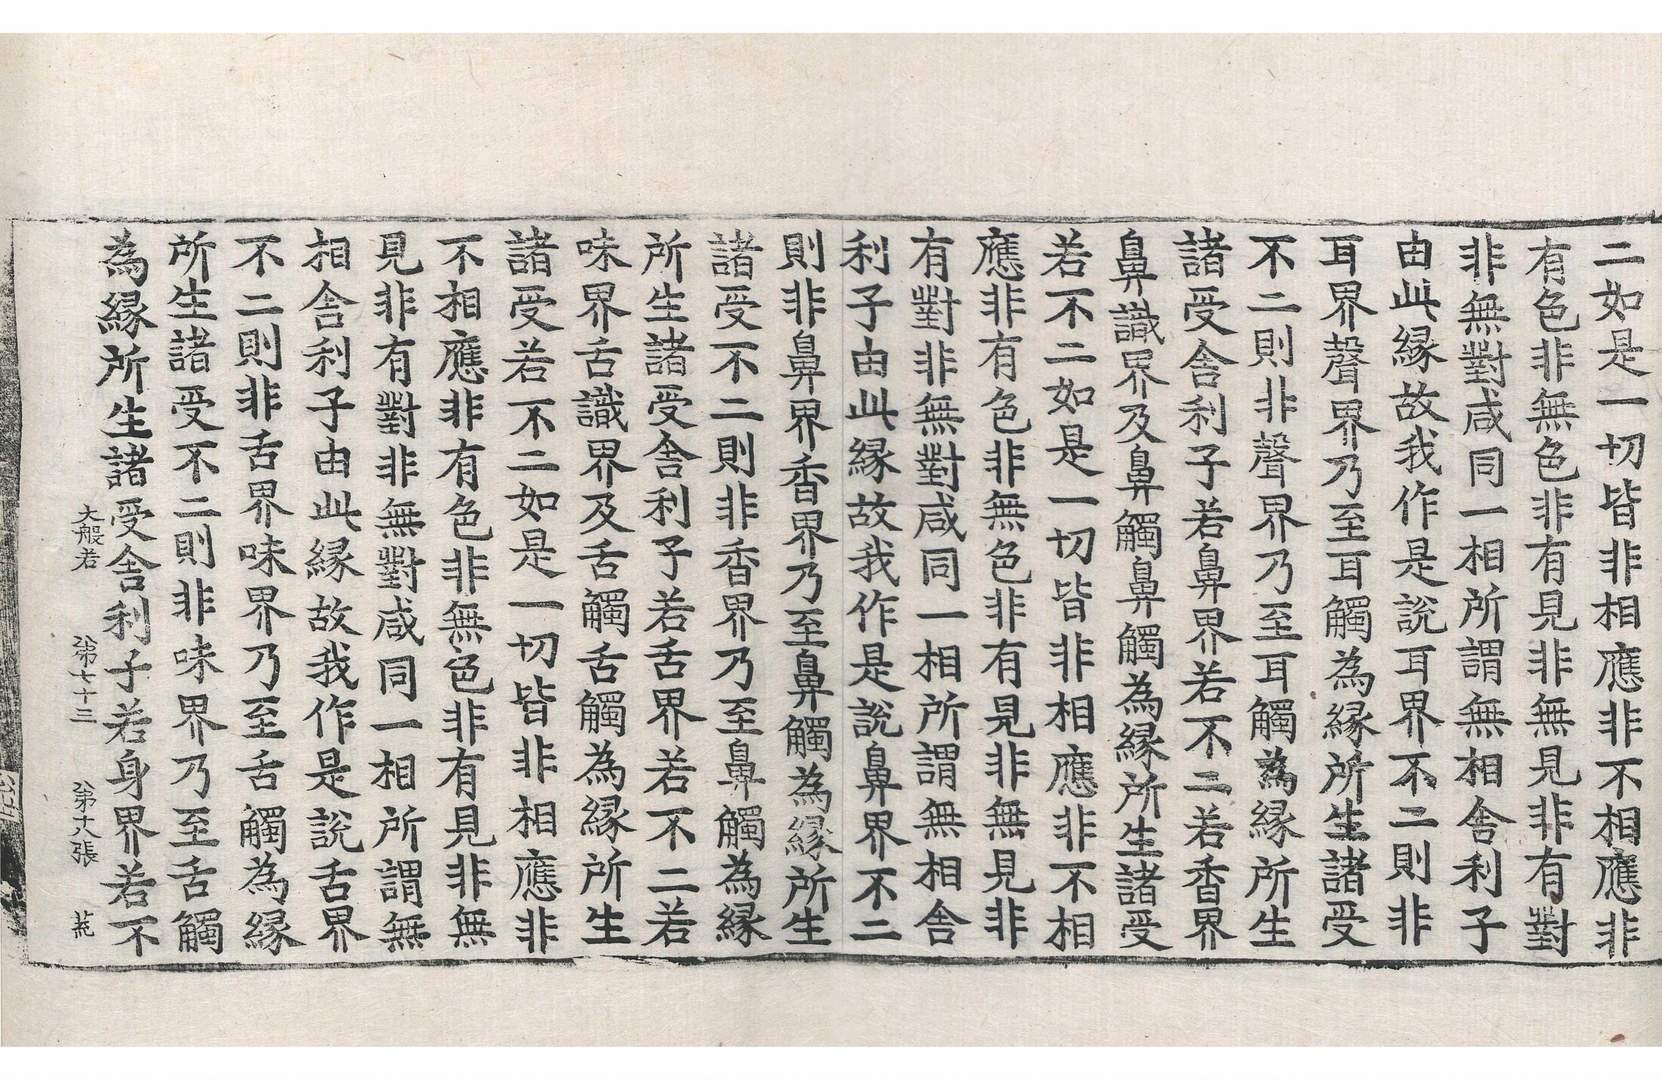 二如是一切皆非相應非不相應非
有色非無色非有見非無見非有對
非無對咸同一相所謂無相舎利子
由此縁故我作是説耳界不二則非
耳界聲界乃至耳觸為縁所生諸受
不二則非聲界乃至耳觸為縁所生
諸受舎利子若鼻界若不二若香界
鼻識界及鼻觸鼻觸為縁所生諸受
若不二如是一切皆非相應非不相
應非有色非無色非有見非無見非
有對非無對咸同一相所謂無相舎
利子由此縁故我作是説鼻界不二
則非鼻界香界乃至鼻觸為縁所生
諸受不二則非香界乃至鼻觸為縁
所生諸受舎利子若舌界若不二若
味界舌識界及舌觸舌觸為縁所生
諸受若不二如是一切皆非相應非
不相應非有色非無色非有見非無
見非有對非無對咸同一相所謂無
相舎利子由此縁故我作是説舌界
不二則非舌界味界乃至舌觸為縁
所生諸受不二則非味界乃至舌觸
為縁所生諸受舎利子若身界若不
大般若 第七十三 第六張 荒